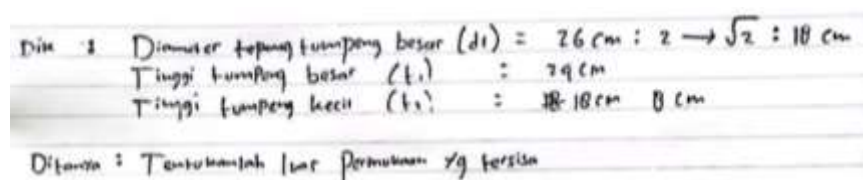 Dik : Diameter tepung tumpeng besar (d1) = 26 cm : 2 → √2 : 18 cm
Tinggi tumpeng besar (t1) : 24 cm
Tinggi tumpeng kecil (t1) : 18 cm 8 cm
Ditanya : Tentukanlah luas Permukaan yg tersisa